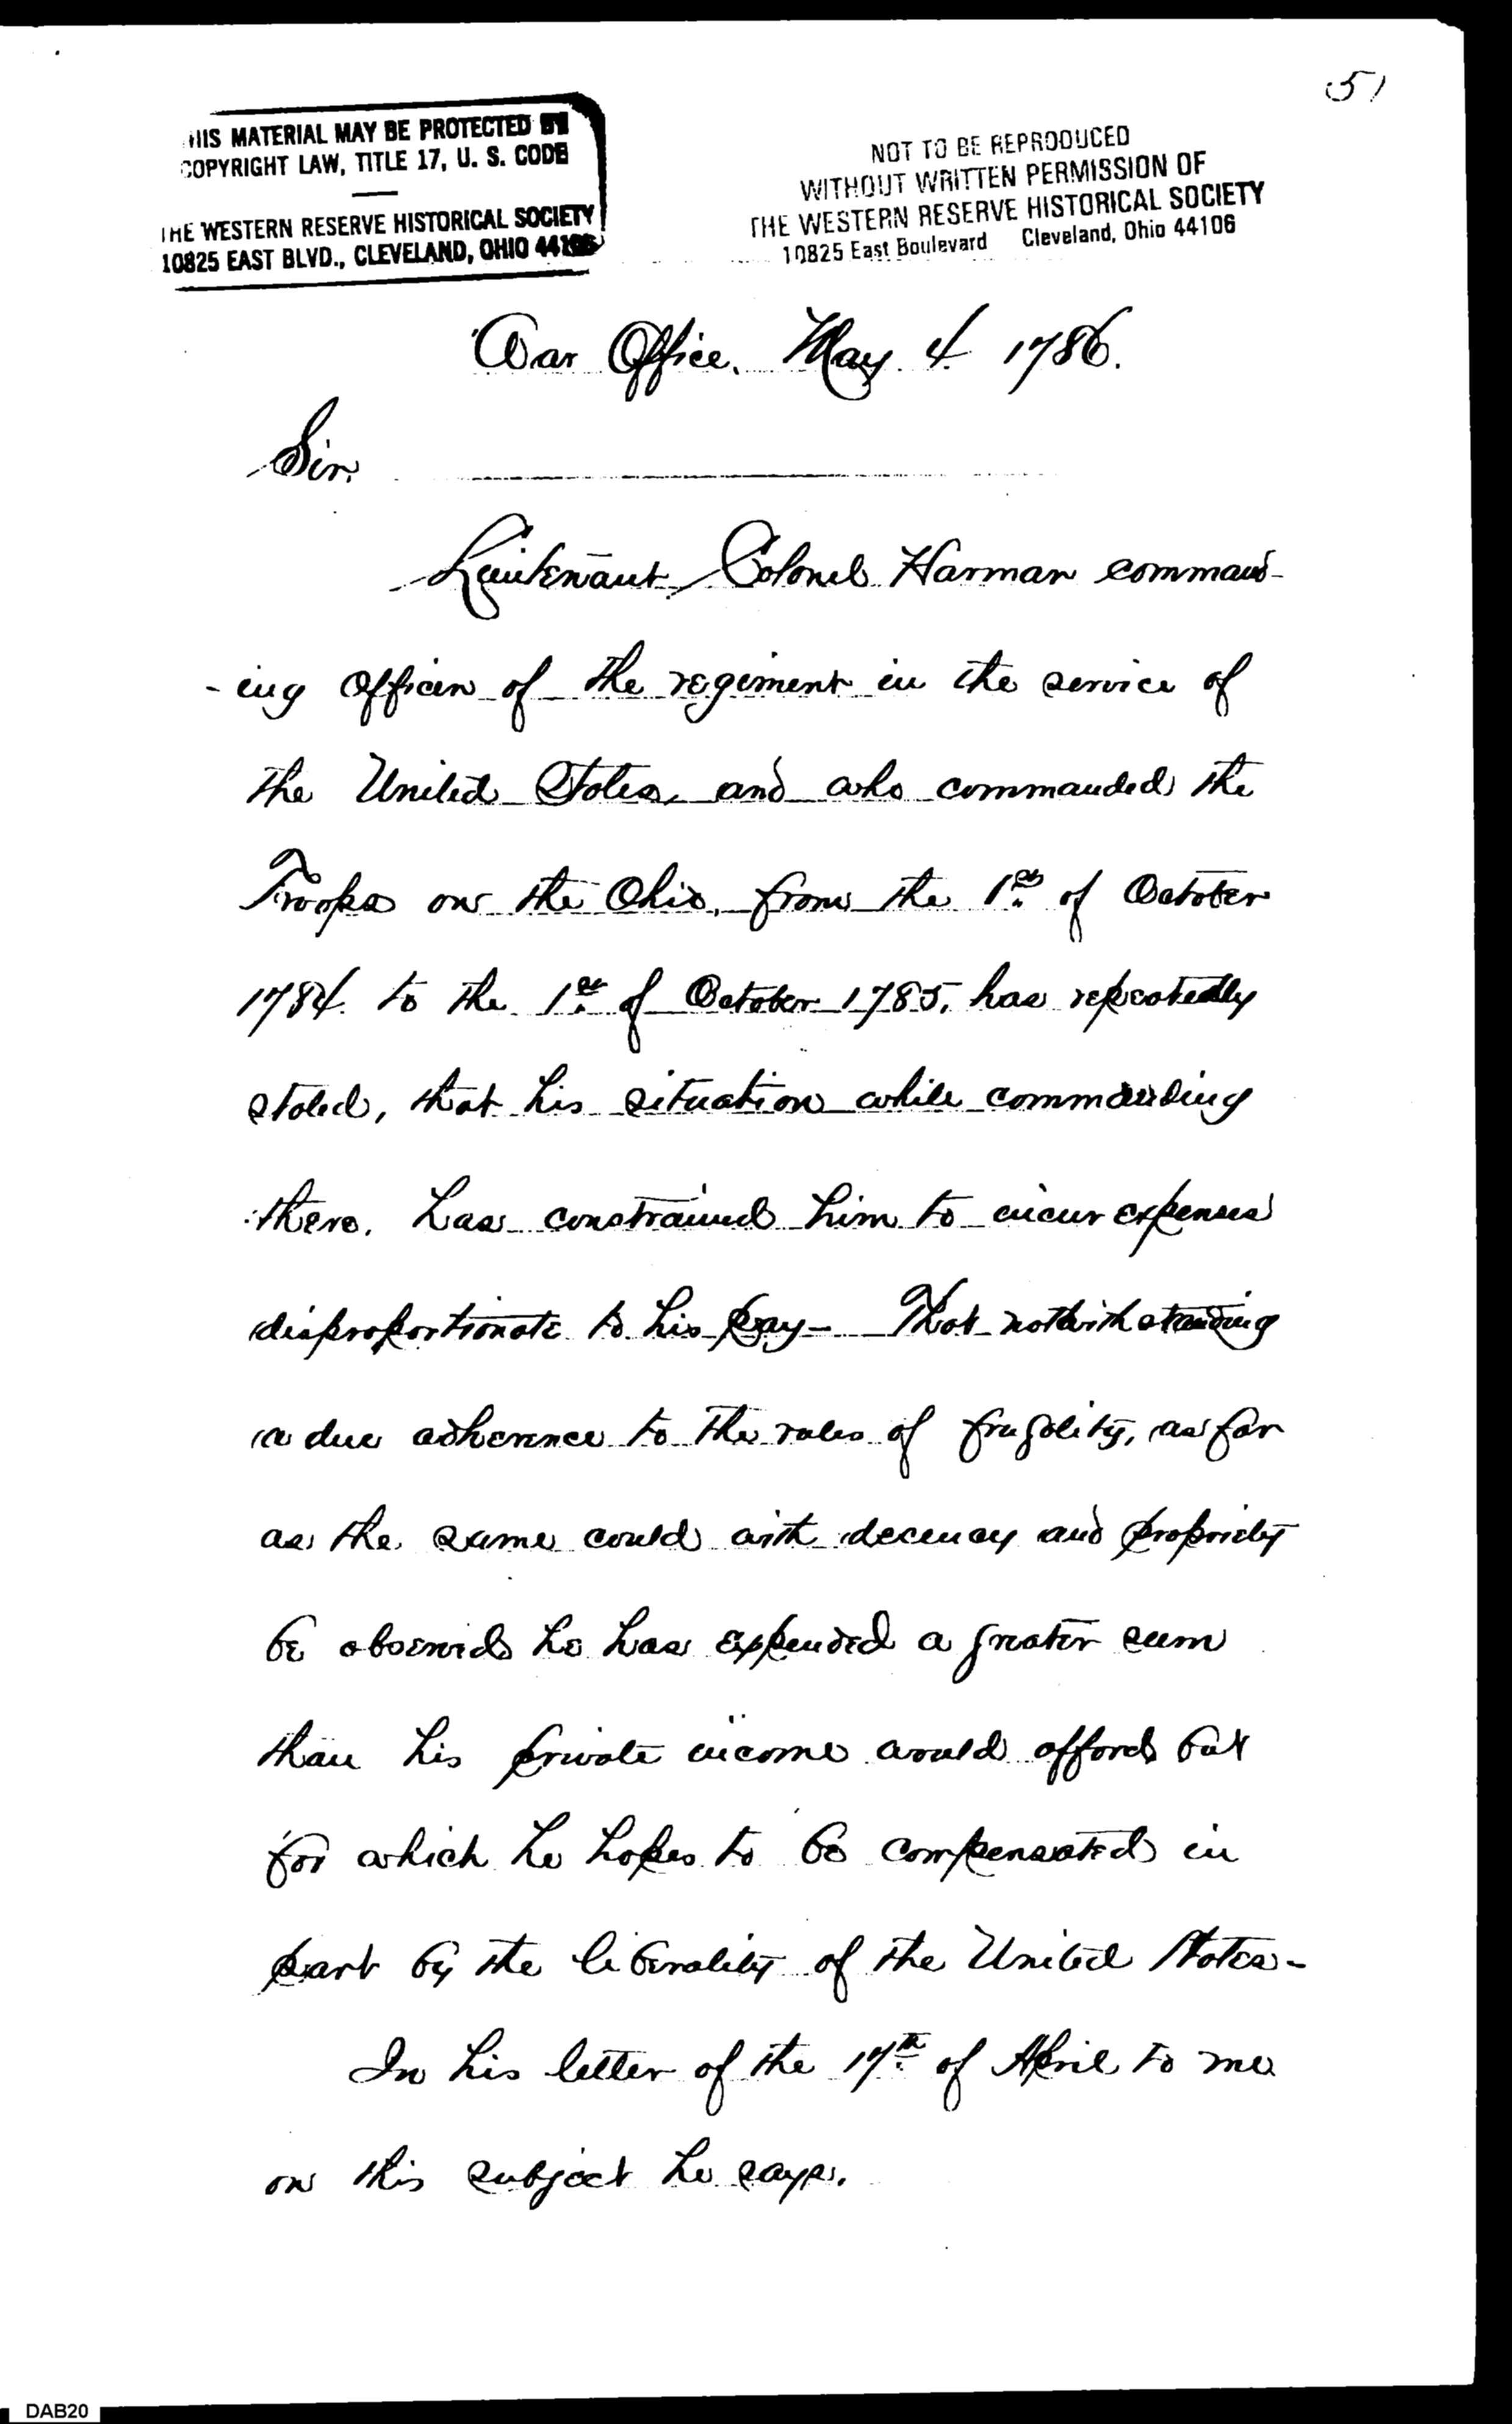 51
HIS MATERIAL MAY BE PROTECTED BY
COPYRIGHT LAW, TITLE 17, U. S. CODE
THE WESTERN RESERVE HISTORICAL SOCIETY
10825 EAST BLVD., CLEVELAND, OHIO 44106
NOT TO BE REPRODUCED
WITHOUT WRITTEN PERMISSION OF
THE WESTERN RESERVE HISTORICAL SOCIETY
10825 East Boulevard Cleveland, Ohio 44106
War Office. May 4. 1786.
Sir.
Lieutenant Colonel Harmar command-
-ing officer of the regiment in the service of
the United States, and who commanded the
Troops on the Ohio, from the 1st of October
1784. to the 1st of October 1785. has repeatedly
stated, that his situation while commanding
there. has constrained him to incur expenses
disproportionate to his pay - That notwithstanding
a due adherence to the rules of frugality, as far
as the same could with decency and propriety
be observed he has expended a greater sum
than his private income would afford but
for which he hopes to be compensated in
part by the liberality of the United States -
In his letter of the 17th of April to me
on this subject he says.
DAB20